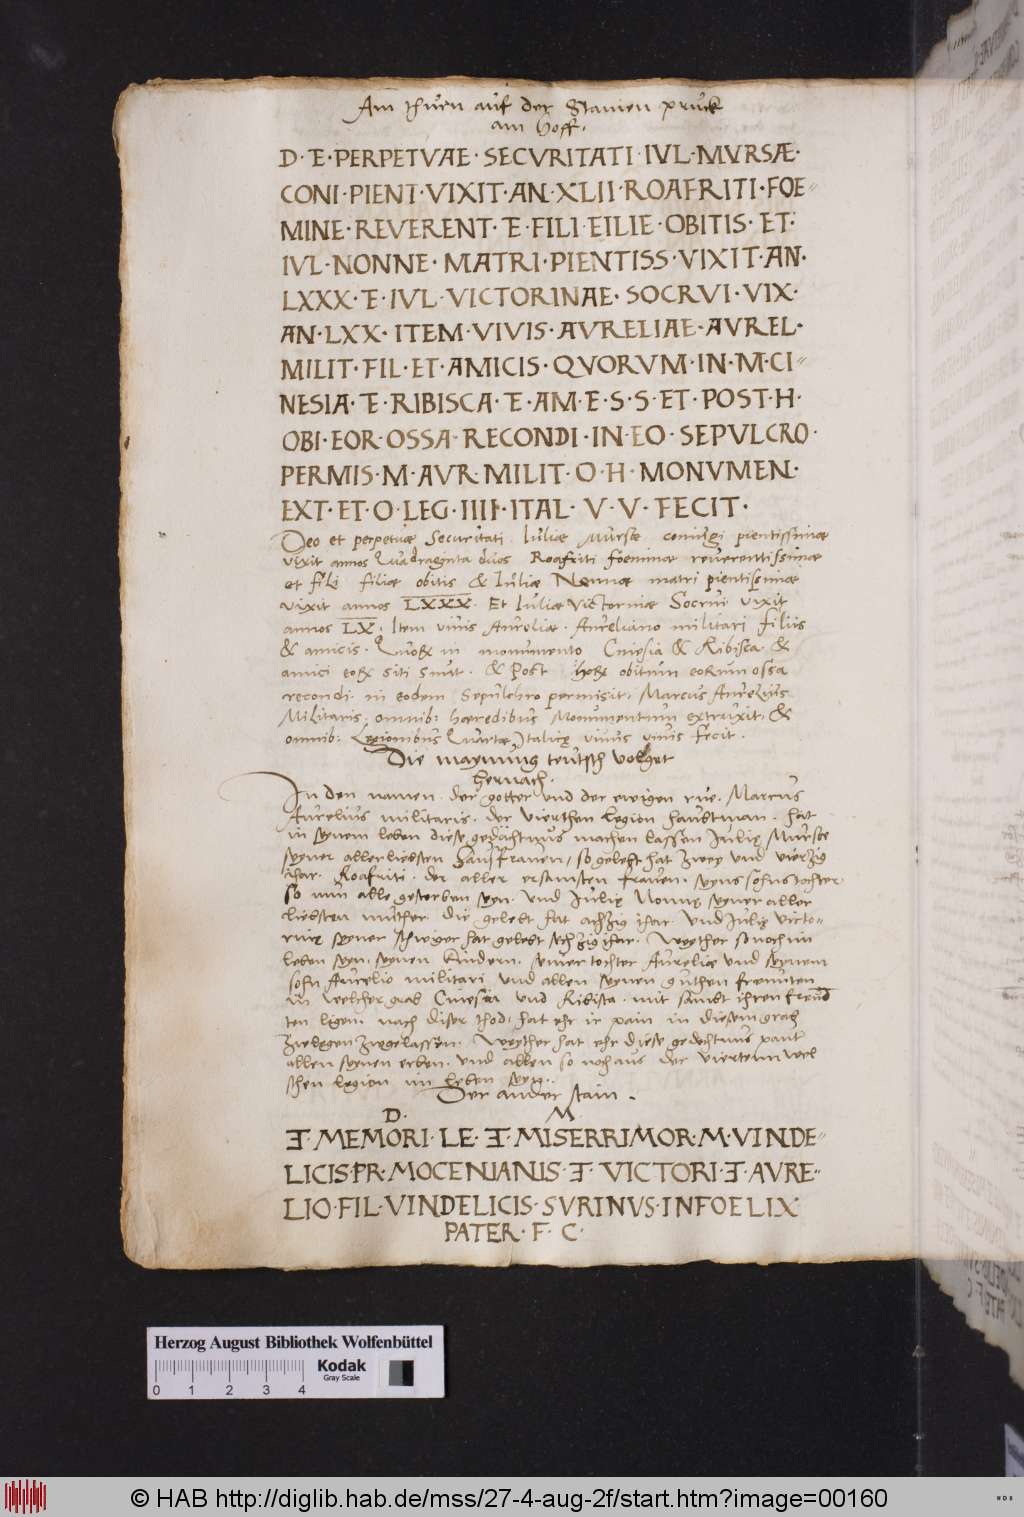 Am thuen auf der Stainen pruck
am hoff.
D · E · PERPETVAE · SECVRITATI · IVL · MVRSÆ ·
CONI · PIENT · VIXIT · AN · XLII · ROAFRITI · FOE=
MINE · REVERENT · E · FILI · EILIE · OBITIS · ET ·
IVL · NONNE · MATRI · PIENTISS · VIXIT · AN ·
LXXX · E · IVL · VICTORINAE · SOCRVI · VIX ·
AN · LXX · ITEM · VIVIS · AVRELIAE · AVREL ·
MILIT · FIL · ET · AMICIS · QVORVM · IN · M · CI=
NESIA · E · RIBISCA · E · AM · E · S · S · ET · POST · H ·
OBI · EOR · OSSA · RECONDI · IN · EO · SEPVLCRO ·
PERMIS · M · AVR · MILIT · O · H · MONVMEN ·
EXT · ET · O · LEG · IIII · ITAL · V · V · FECIT ·
Deo et perpetuæ Securitati Iuliæ Mursæ coniugi pientissimæ
vixit annos Quadraginta duos Roafriti foeminæ reverentissimæ
et fili filiæ obitis & Iuliæ Nonnæ matri pientissimæ
vixit annos LXXX. Et Iuliæ Victorinæ Socrui vixit
annos LX. Item vivis Aureliæ. Aureliano militari filiis
& amicis. Quorum in monumento Cinesia & Ribisca &
amici eorum siti sunt. & Post horum obitum eorum ossa
recondi in eodem Sepulchro permisit. Marcus Aurelius
Militaris. omnib: hæredibus Monumentum extruxit. &
omnib: Legionibus Quartæ Italicę vivus vivis fecit.
Die maynung teutsch volget
hernach.
In den namen der gotter und der ewigen rue. Marcus
Aurelius militaris. der vierthen legion haubtman. hat
in seynem leben diese gedächtnus machen lassen Iulię Mursæ
seyner allerliebsten Hausfrauen, so gelebt hat zwey und vierzig
ihar. Roafriti. der aller ersamsten frauen. seyns sohns tochter
so nun alle gestorben seyn. und Iulię Nonnę seyner aller
liebsten muther die gelebt hat achzig ihar. Und Iulię victo-
rinę seyner schwiger hat gelebt sechzig ihar. Weyther so noch im
leben seyn, seynen kindern. seiner tochter Aureliæ und seynem
sohn Aurelio militari und allen seynen guthen freunten
in welcher grab Cinesia und Ribisca mit sambt ihren freund
ten ligen. nach diser thod. hat ehr ir pain in diesem grab
zwlegen zwgelassen. Weyther hat ehr diese gedechtnus paut
allen seynen erben. und allen so noch aus der vierten wel
schen legion im leben seyn.
Der ander stain.
D. M.
Ǝ · MEMORI · LE · Ǝ · MISERRIMOR · M · VINDE=
LICIS · PR · MOCENIANIS · Ǝ · VICTORI · Ǝ · AVRE=
LIO · FIL · VINDELICIS · SVRINVS · INFOELIX
PATER · F · C ·
Herzog August Bibliothek Wolfenbüttel
Kodak
Gray Scale
0 1 2 3 4
© HAB http://diglib.hab.de/mss/27-4-aug-2f/start.htm?image=00160